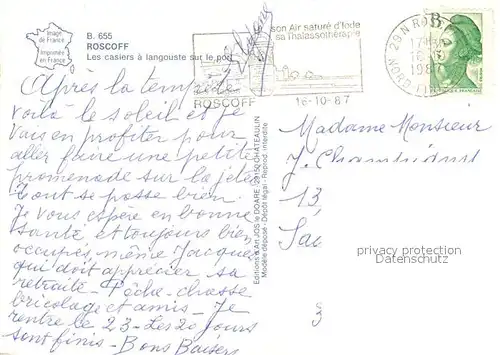 B. 655
ROSCOFF
Les casiers à langouste sur le port
Image
de France
son Air saturé d'Iode
sa Thalassothérapie
ROSCOFF
16-10-87
29 N RO
NORD FIN
Après la tempête
voilà le soleil et je
vais en profiter pour
aller faire une petite
promenade sur la jetée
Tout se passe bien.
Je vous espère en bonne
santé et toujours bien
occupés, même Jacques
qui doit apprécier sa
retraite - Pêche - chasse
bricolage et amis - Je
rentre le 23 - Les 20 jours
sont finis - Bons Baisers
Editions d'Art JOS le DOARE / 29150 CHATEAULIN
Modèle déposé - Dépôt légal - Reprod. interdite
Madame Monsieur
J.
13
privacy protection
Datenschutz